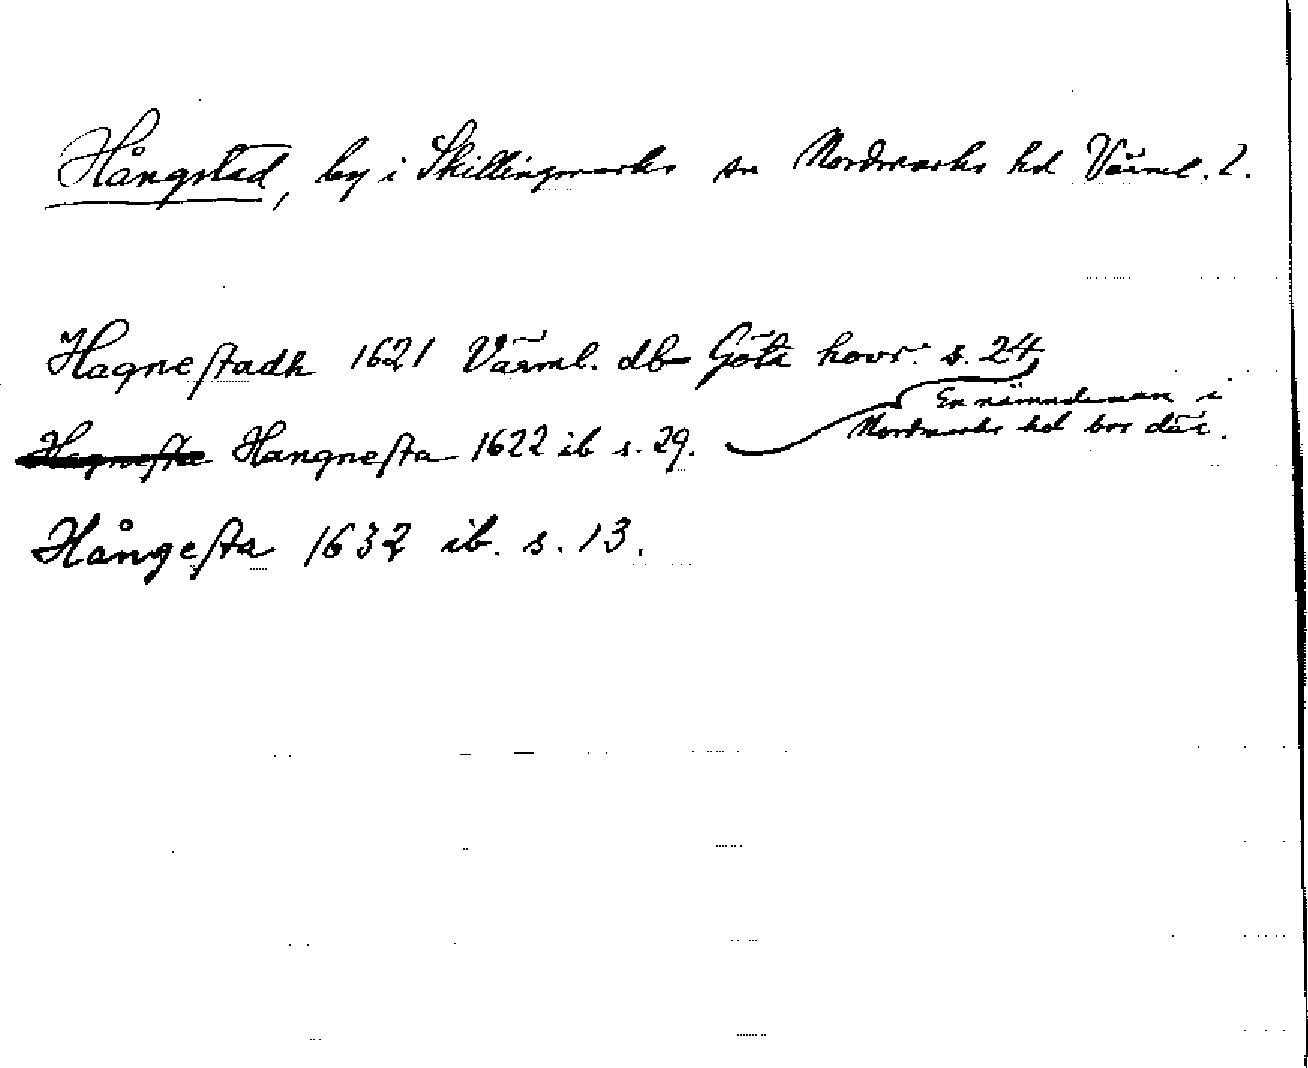 Hångstad, by i Skillingmarks sn Nordmarks hd Värml. l.
Hagnestadh 1621 Värml. db Göta hovr. s. 24
En nämndeman i
Nordmarks hd bor där.
Hagnesta Hangnesta 1622 ib s. 29.
Hångesta 1632 ib. s. 13.